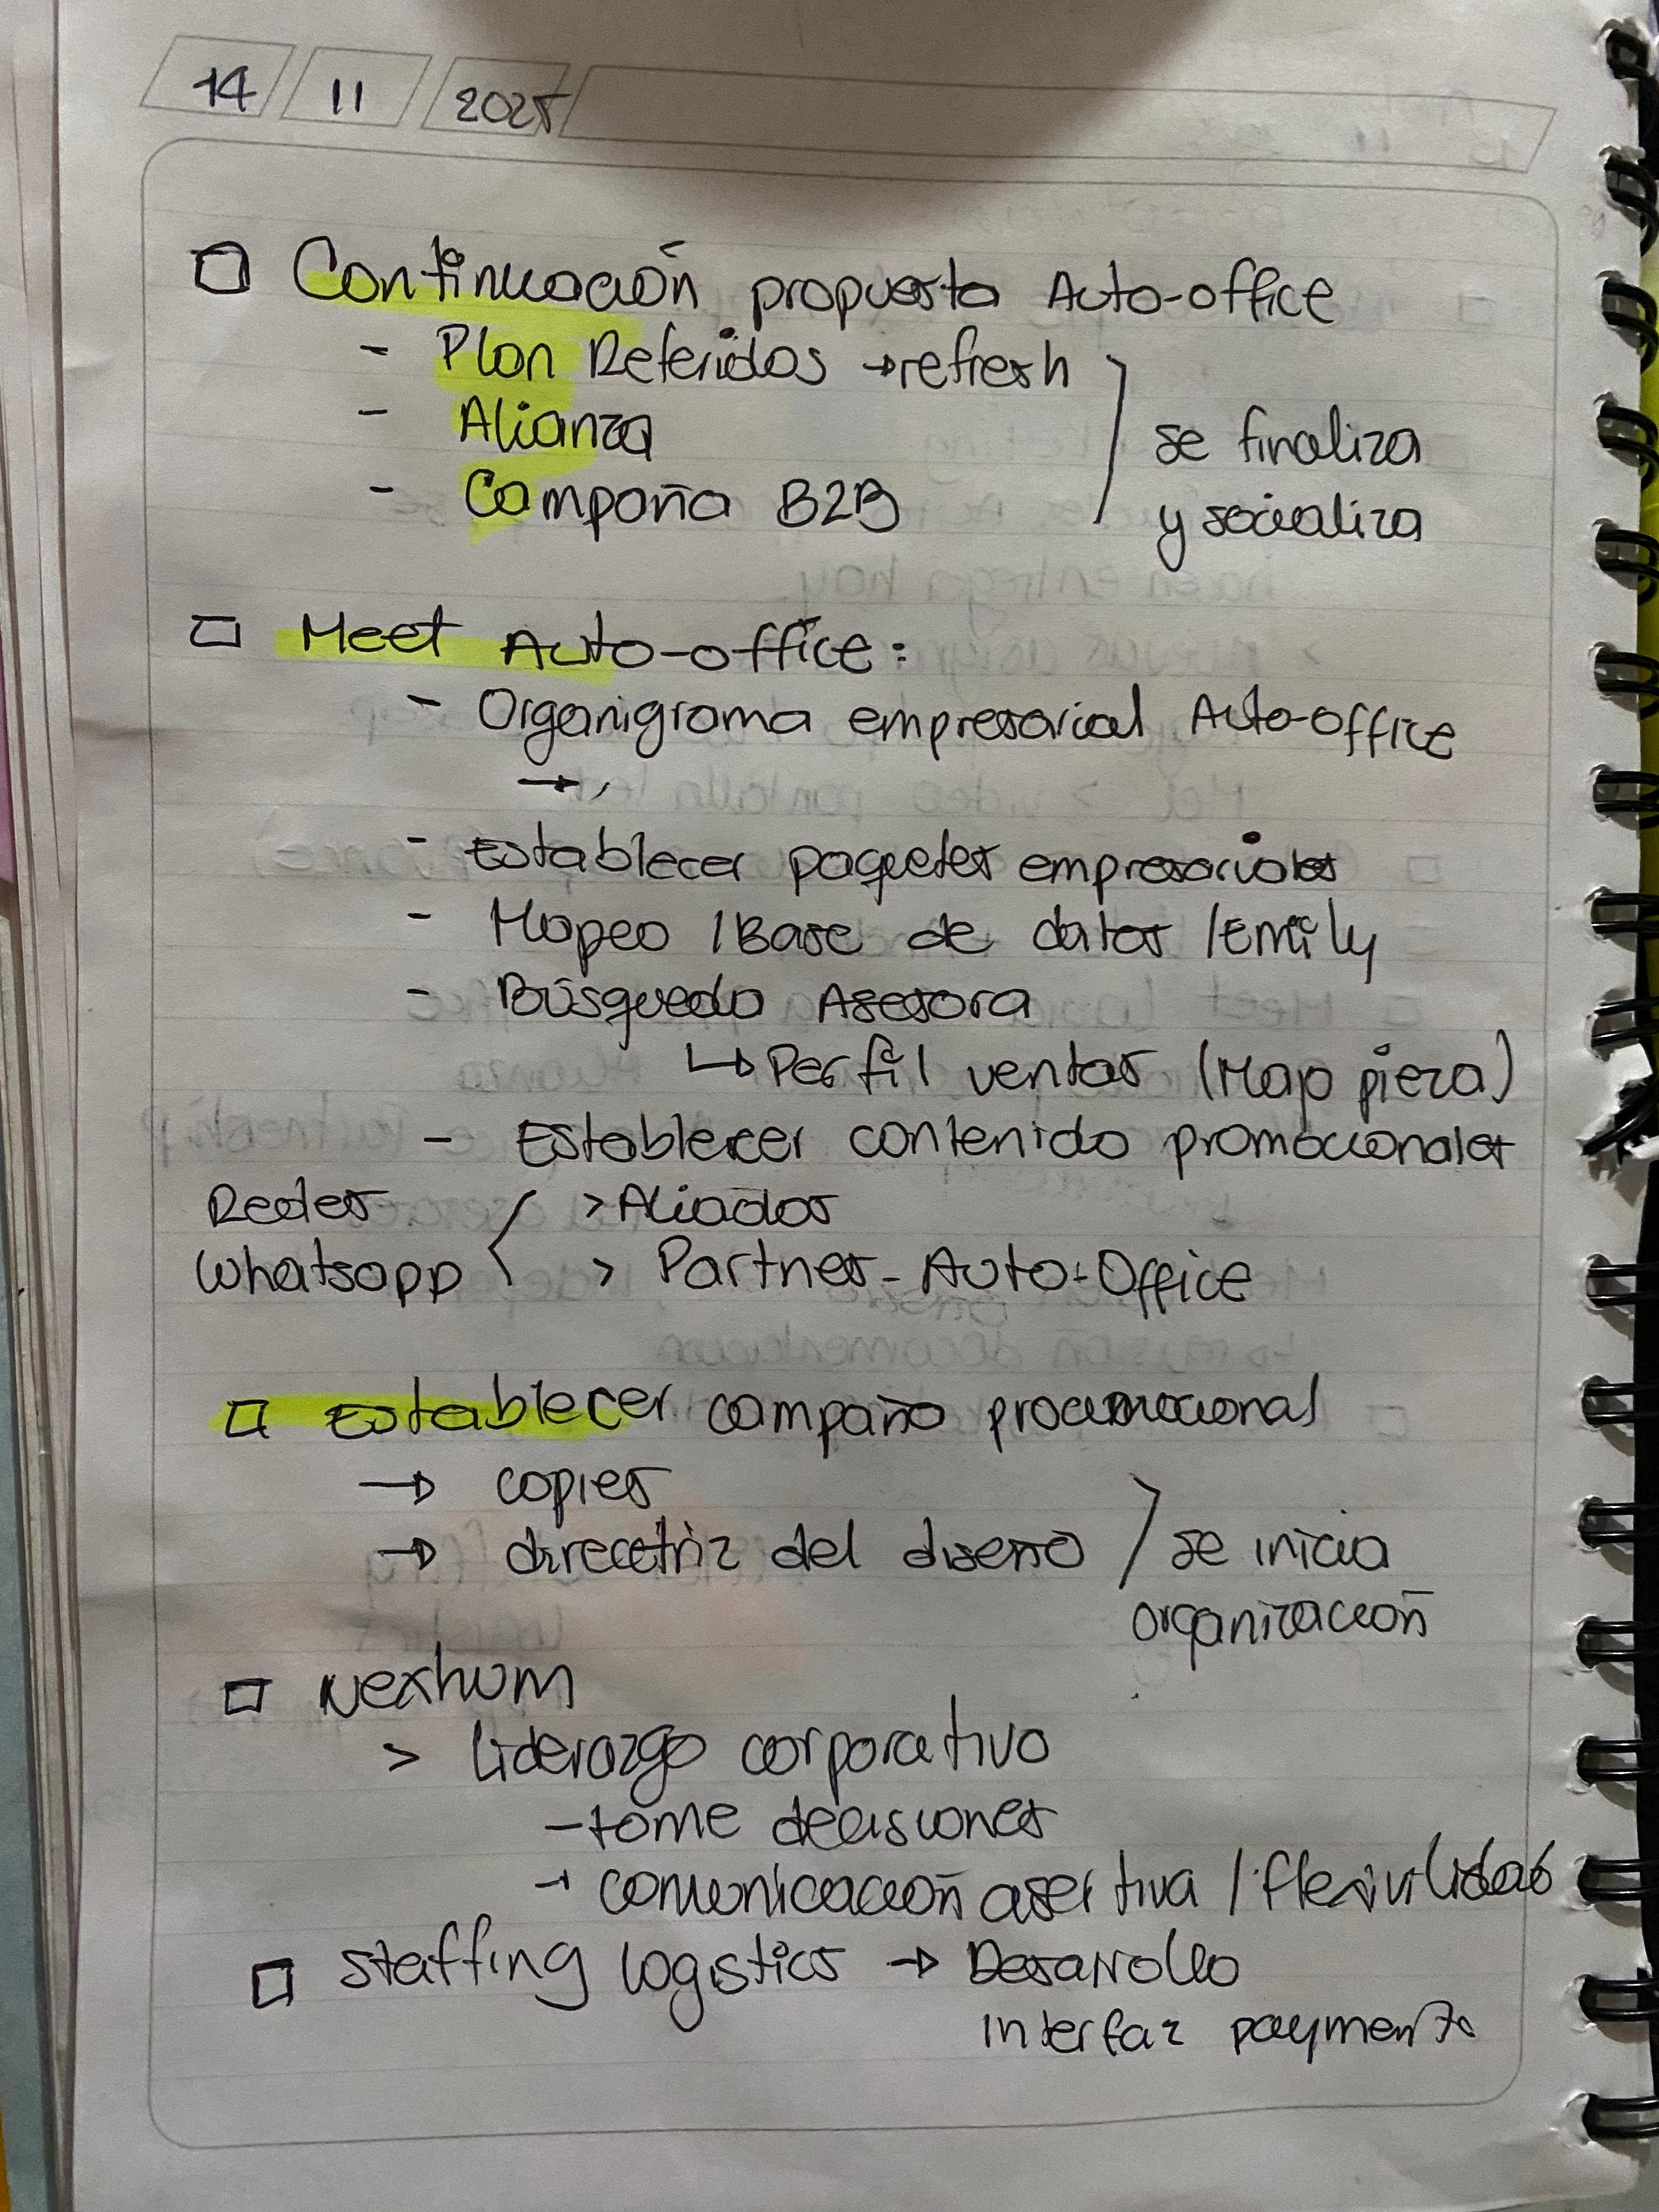 14 11 2025
□ Continuación propuesta Auto-office
- Plan Referidos → refresh
- Alianza
- Campaña B2B
se finaliza
y socializa
□ Meet Auto-office:
- Organigrama empresarial Auto-office
→,
- Establecer paquetes empresariales
- Mapeo / Base de datos / Emily
- Búsqueda Asesora
↳ Perfil ventas (Majo pieza)
- Establecer contenido promocionales
Redes > Aliados
Whatsapp > Partner - Auto-Office
□ Establecer campaña promocional
→ copies
→ directriz del diseño
se inicia
organización
□ Nexhum
> Liderazgo corporativo
- tome decisiones
→ comunicación asertiva / flexivilidad
□ Staffing logistics → Desarrollo
interfaz payments